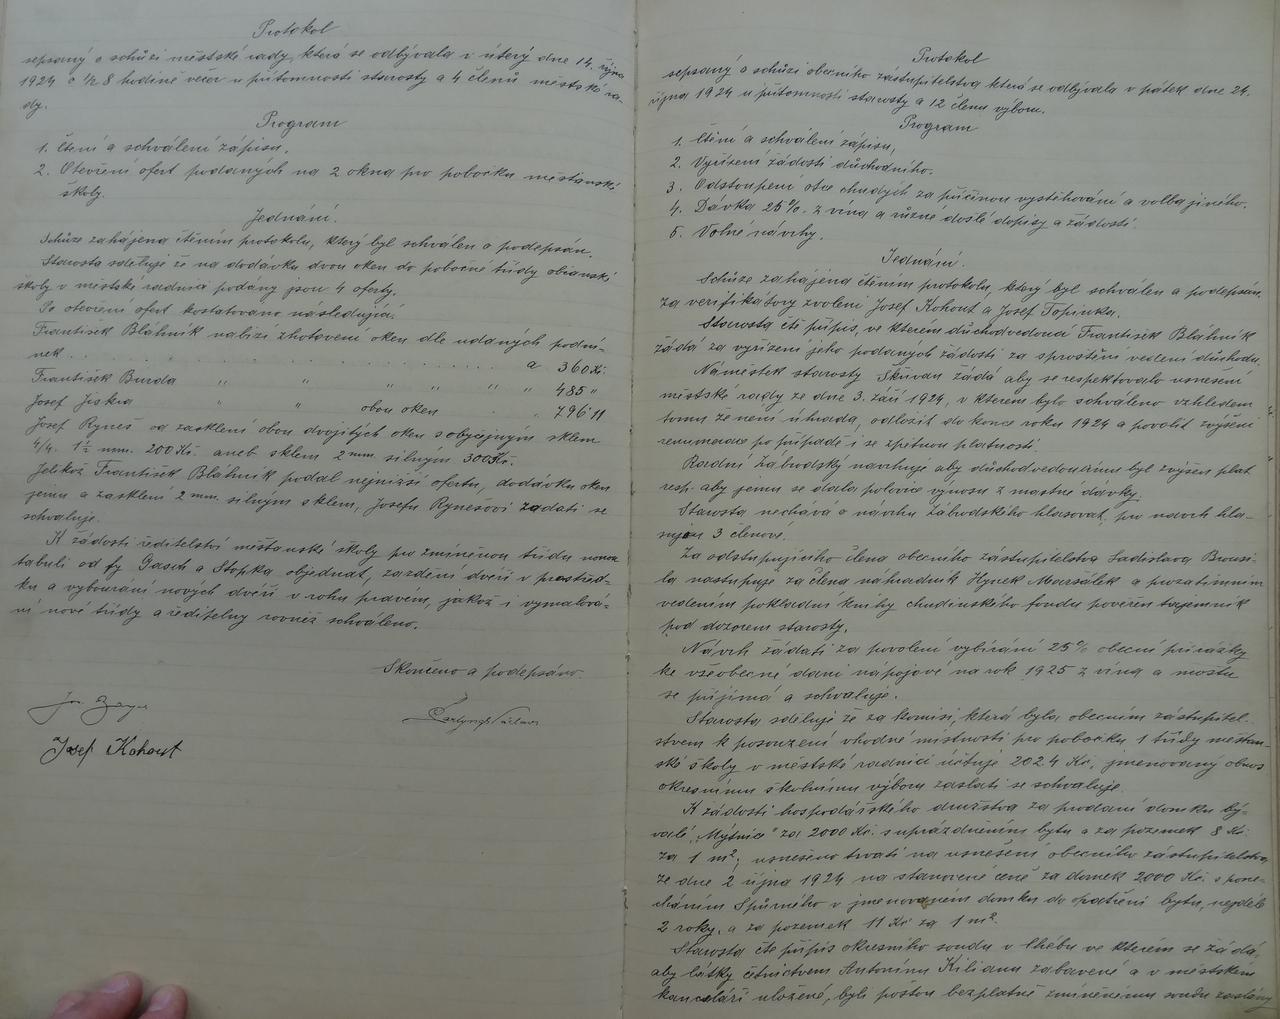 Protokol
sepsaný o schůzi městské rady, která se odbývala v úterý dne 14. října
1924 o ½ 8 hodině večer u přítomnosti starosty a 4 členů městské ra-
dy.
Program
1. Čtení a schválení zápisu.
2. Otevření ofert podaných na 2 okna pro pobočku měšťanské
školy.
Jednání.
Schůze zahájena čtením protokolu, který byl schválen a podepsán.
Starosta sděluje že na dodávku dvou oken do pobočné třídy občanské
školy v městské radnici podány jsou 4 oferty.
Po otevření ofert kostatováno následující:
František Bláhník nabízí zhotovení oken dle udaných podmí-
nek . . . . . . . . a 360 Kč.
František Burda " " " " " " 485 "
Josef Jiskra " " obou oken " 796·11
Josef Ryneš od zasklení obou dvojitých oken s obyčejným sklem
4/4. 1½ mm. 200 Kč. aneb sklem 2 mm. silným 300 Kč.
Jelikož František Bláhník podal nejnižší ofertu, dodávku oken
jemu a zasklení 2 mm. silným sklem, Josefu Rynešovi zadati se
schvaluje.
K žádosti ředitelství měšťanské školy pro zmíněnou třídu novou
tabuli od fy Gasch a Stopka objednat, zazdění dveří v prostřed-
ku a vybourání nových dveří v rohu pravém, jakož i vymalová-
ní nové třídy a ředitelny rovněž schváleno.
Skončeno a podepsáno.
Josef Kohout
Protokol
sepsaný o schůzi obecního zastupitelstva která se odbývala v pátek dne 24.
října 1924 u přítomnosti starosty a 12 členu výboru.
Program
1. Čtení a schválení zápisu,
2. Vyřízení žádosti důchodního.
3. Odstoupení otce chudých za příčinou vystěhování a volba jiného.
4. Dávka 25%. z vína a různe došlé dopisy a žádosti.
5. Volné návrhy.
Jednání.
Schůze zahájena čtením protokolu, který byl schválen a podepsán,
za verifikátory zvoleni Josef Kohout a Josef Topinka.
Starosta čtí přípis, ve kterém důchodvedoucí František Bláhník
žádá za vyřízení jeho podaných žádostí za sproštění vedení důchodu.
Náměstek starosty Skřivan žádá aby se respektovalo usnesení
městské rady ze dne 3. září 1924, v kterém bylo schváleno vzhledem
tomu že není úhrada, odložit do konce roku 1924 a povolit zvýšení
remunerace po případě i se zpětnou platností.
Radní Zábrodský navrhuje aby důchodvedoucímu byl zvýšen plat
resp. aby jemu se dala polovice výnosu z mastné dávky.
Starosta nechává o návrhu Zábrodského hlasovat, pro návrh hla-
sují 3 členové.
Za odstupujícího člena obecního zástupitelstva Ladislava Brousi-
la nastupuje za člena náhradník Hynek Maršálek a prozatímním
vedením pokladní knihy chudinského fondu pověřen tajemník
pod dozorem starosty.
Návrh žádati za povolení vybírání 25% obecní přirážky
ke všeobecné dani nápojové na rok 1925 z vína a moštu
se přijímá a schvaluje.
Starosta sděluje že za komisi, která byla obecním zástupitel-
stvem k posouzení vhodné místnosti pro pobočku 1 třídy měšťan-
ské školy v městské radnici účtuje 202.4 Kč, jmenovaný obnos
okresnímu školnímu výboru zaslati se schvaluje.
K žádosti hospodářského družstva za prodání domku bý-
valé „Mýtnice" za 2000 Kč. s uprázdněním bytu a za pozemek 8 Kč
za 1 m², usneseno trvati na usnesení obecního zástupitelstva
ze dne 2 října 1924 na stanovené ceně za domek 2000 Kč. s pone-
cháním Spůrného v jmenovaném domku do opatření bytu, nejdéle
2 roky, a za pozemek 11 Kč za 1 m².
Starosta čte přípis okresního soudu v Chebu ve kterém se žádá,
aby látky četnictvem Antonínu Kilianu zabavené a v městském
kanceláři uložené, byli poštou bezplatně zmíněnému soudu zaslány